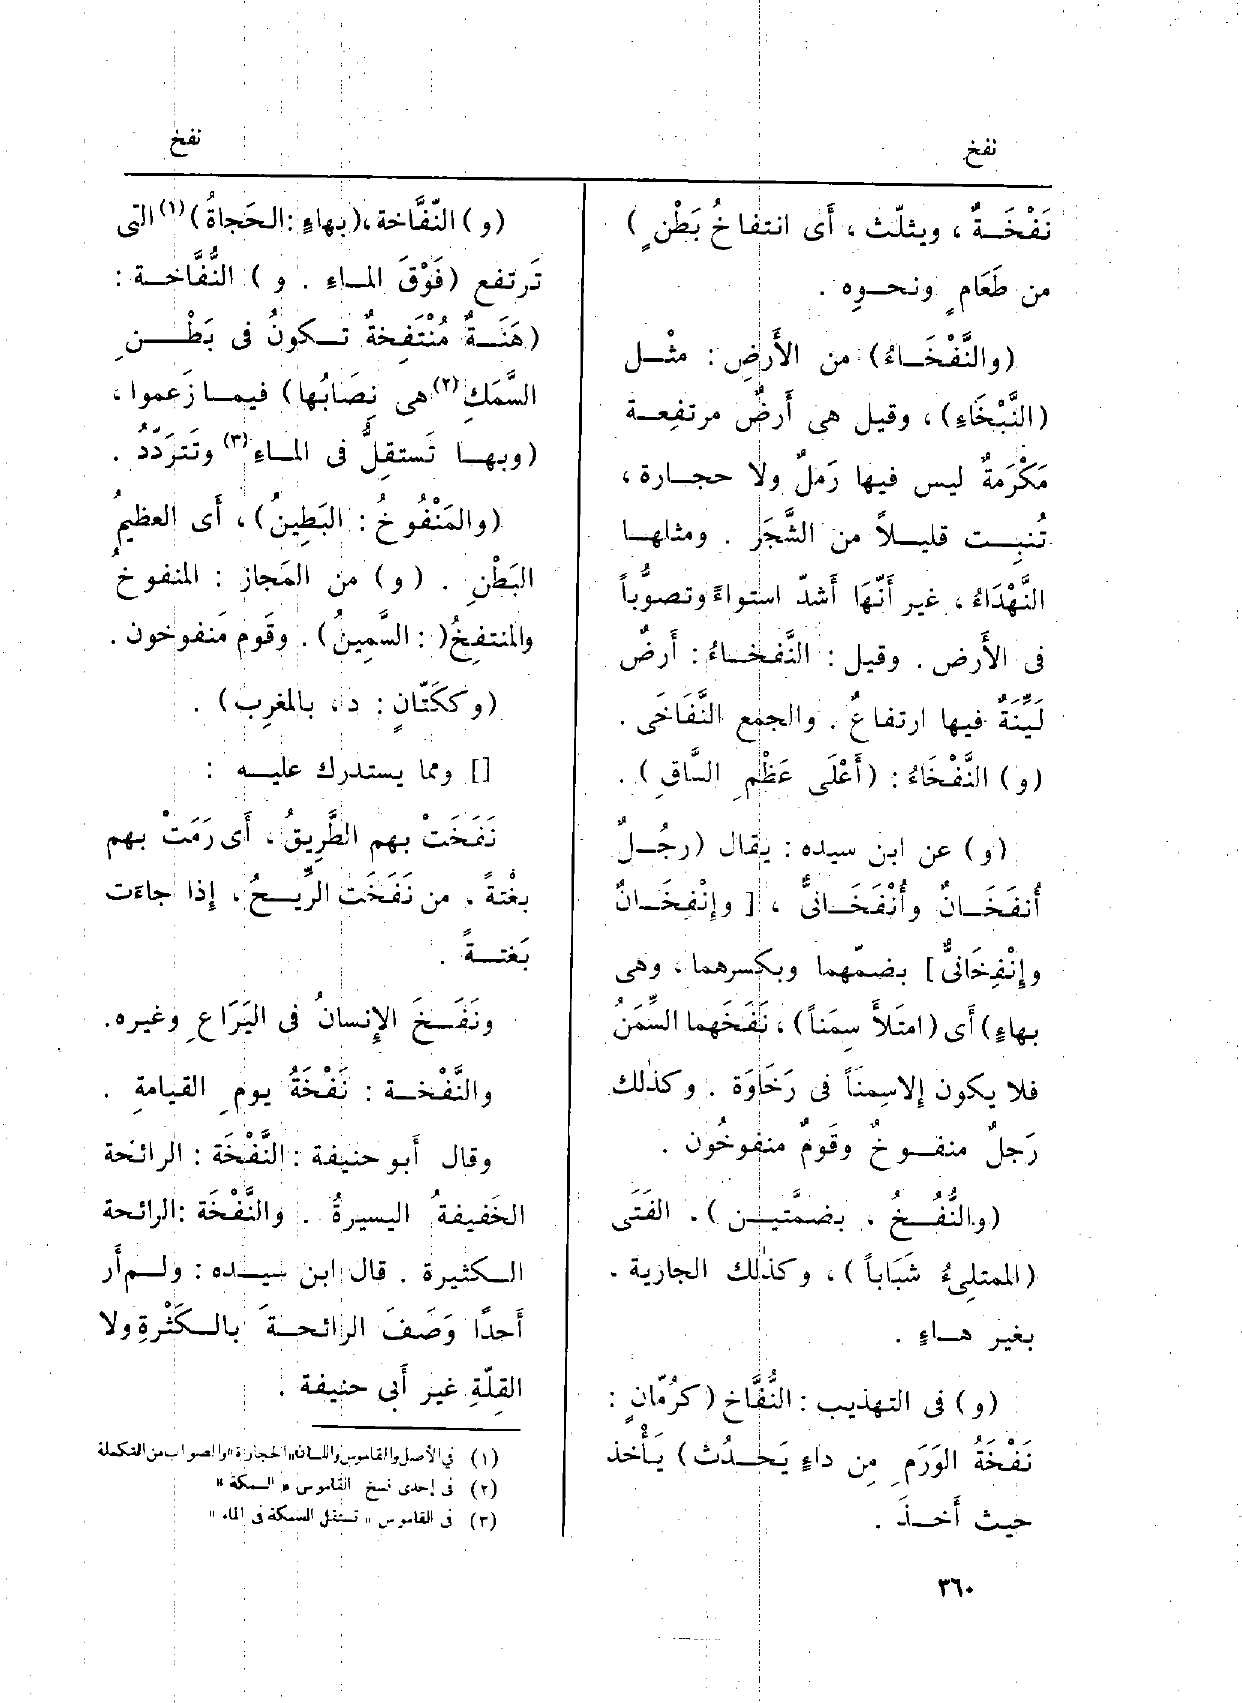 نفخ
نفخ
نَفْخَـةٌ ، ويثلّث ، أَى انتفاخُ بَطْنٍ )
من طَعَامٍ ونحـوِه .
(والنَّفْخَـاءُ) من الأَرضِ : مثْـل
(النَّبْخَاءِ) ، وقيل هى أَرضٌ مرتفعـة
مَكْرَمةٌ ليس فيها رَملٌ ولا حجـارة ،
تُنبِـت قليـلاً من الشَّجَر . ومثلهـا
النَّهْدَاءُ ، غير أَنّهَا أَشدّ استواءً وتصوُّباً
فى الأَرض . وقيل : النَّفخـاءُ : أَرضٌ
لَيِّنَةٌ فيها ارتفاعٌ . والجمع النَّفَاخَى .
(و) النَّفْخَاءُ : (أَعْلَى عَظْمِ السَّاقِ ) .
(و) عن ابن سيده : يقال (رجُـلٌ
أُنفَخَـانٌ وأُنْفَخَـانىٌّ ، [ وإِنْفِخَـانٌ
وإِنْفِخَانىٌّ ] بضمّهما وبكسرهما ، وهى
بهاءٍ) أَى (امتَلأَ سِمَناً ) ، نَفَخَهما السِّمَنُ
فلا يكون إِلاسِمنَاً فى رَخَاوَة . وكذٰلك
رَجلٌ منفـوخٌ وقَومٌ منفوخُون .
(والنُّفُـخُ ، بضمَّتيـن ) . الفَتَى
(الممتلِىءُ شَبَاباً )، وكذٰلك الجارية .
بغير هـاءٍ .
(و) فى التهذيب : النُّفَّاخ (كرُمّانٍ :
نَفْخَةُ الوَرَمِ مِن داءٍ يَحـدُث ) يَأْخذ
حيث أَخـذَ .
(و) النّفَّاخة ،(بهاءٍ :الحَجاةُ)(١) التى
تَرتفع (فَوْقَ المـاءِ . و ) النُّفَّاخـة :
(هَنَـةٌ مُنْتَفِخةٌ تـكونُ فى بَطْـنِ
السَّمَكِ(٢) هى نِصَابُها) فيمـا زَعموا ،
(وبهـا تَستقِلُّ فى المـاءِ(٣) وتَتَردّدُ .
(والمَنْفُوخُ : البَطِينُ) ، أَى العظيمُ
البَطْنِ . (و) من المَجاز : المنفوخُ
والمنتفِخُ( : السَّمِينُ) . وقَوم مَنفوخون .
(وككَتّانٍ : د ، بالمغرِب) .
[] ومما يستدرك عليـه :
نَفَخَتْ بهم الطَّرِيقُ ، أَى رَمَتْ بهم
بغْتةً . من نَفَخَت الرِّيـحُ ، إِذا جاءَت
بَغتـةً .
ونَفَـخَ الإِنسانُ فى اليَرَاعِ وغيره.
والنَّفْخـة : نَفْخَةُ يومِ القيامةِ .
وقال أَبو حنيفة : النَّفْخَة : الرائحة
الخَفيفةُ اليسيرةُ . والنَّفْخَة :الرائحة
الـكثيرة . قال ابن سيـده : ولـم أَر
أَحدًا وَصَفَ الرائحـةَ بالـكَثْرةِ ولا
القِلّةِ غير أَبى حنيفة .
(١) في الأصل والقاموس واللسان«الحجارة»والصواب من التكملة
(٢) فى إحدى نسخ القاموس « السمكة »
(٣) فى القاموس « تستقل السمكة فى الماء »
٣٦٠